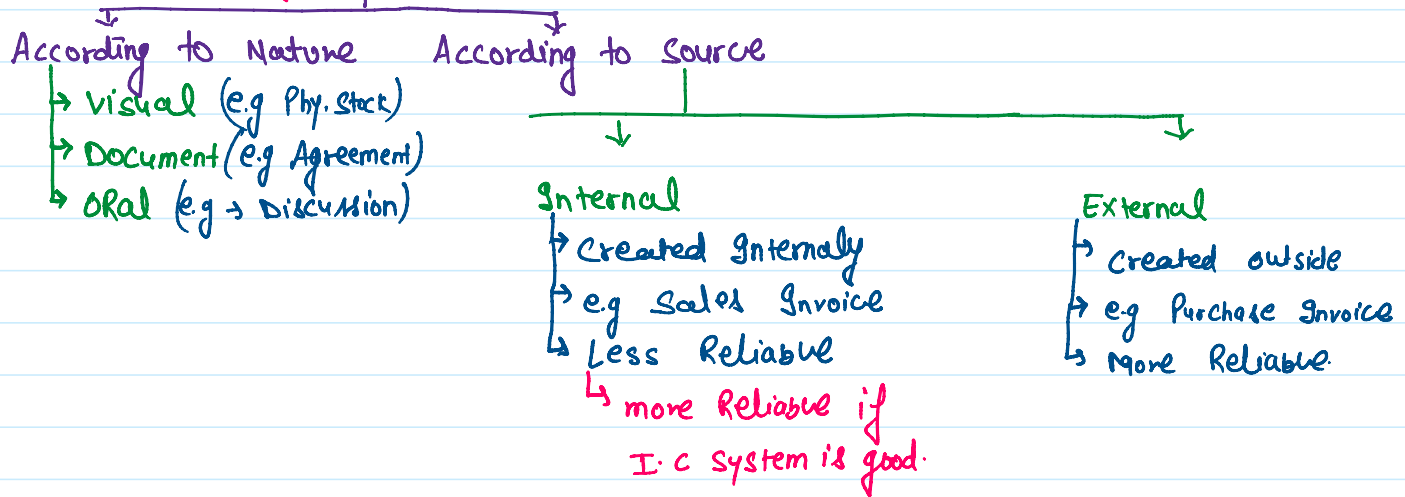 According to Nature
→ Visual (e.g Phy. Stock)
→ Document (e.g Agreement)
→ ORal (e.g → Discussion)
According to Source
Internal
→ Created Internaly
→ e.g Sales Invoice
→ Less Reliable
↳ more Reliable if
I.C System is good.
External
→ Created outside
→ e.g Purchase Invoice
→ More Reliable.